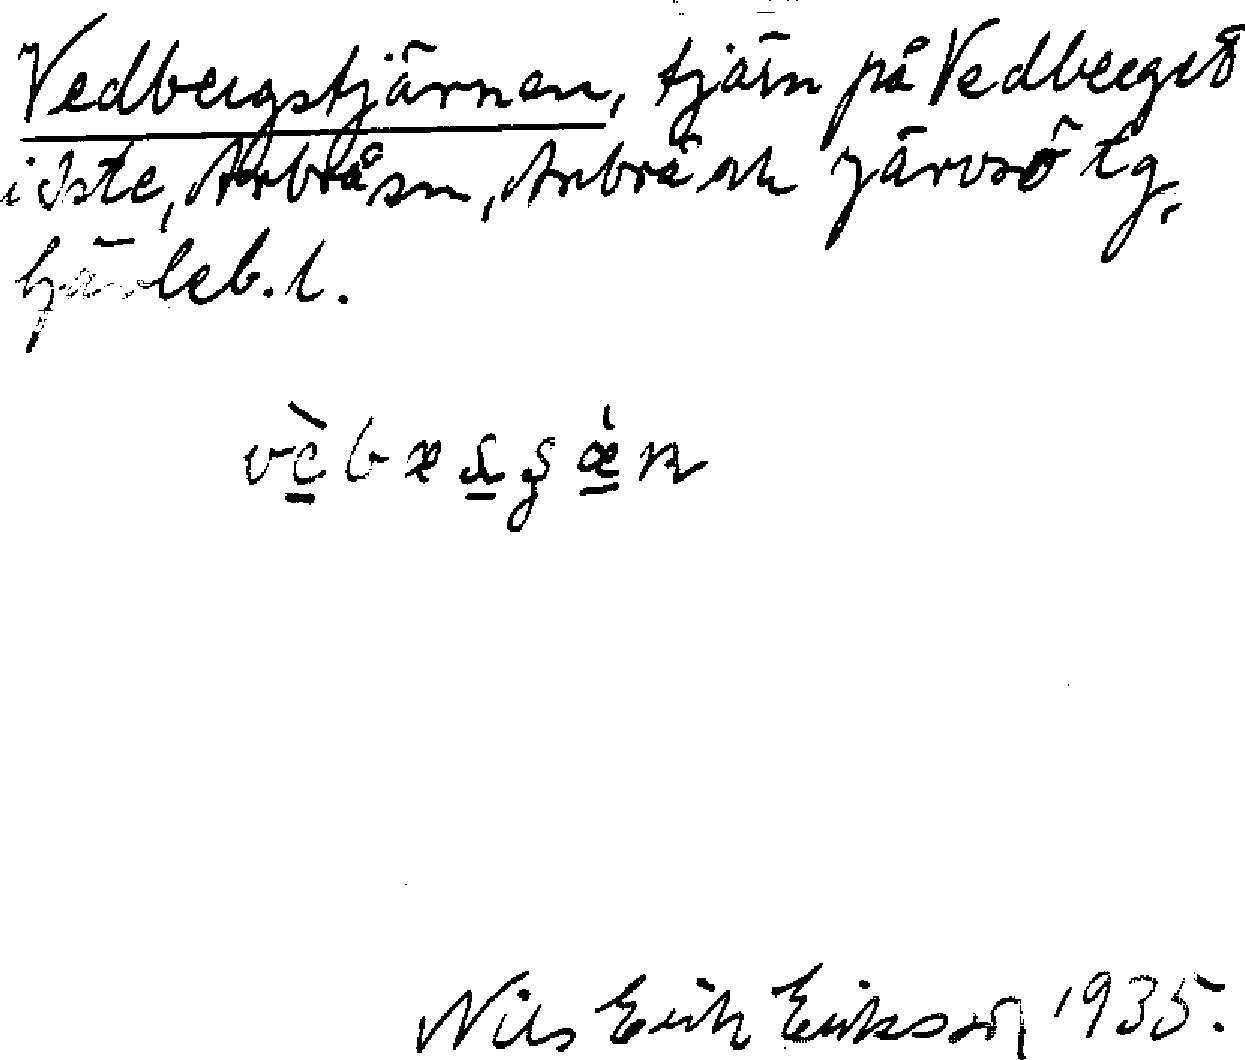 Vedbergstjärnen, tjärn på Vedbergs
i Iste, Arbrå sn, Arbrå och Järvsö tg,
Gävleb. l.
Nils Erik Eriksson 1935.